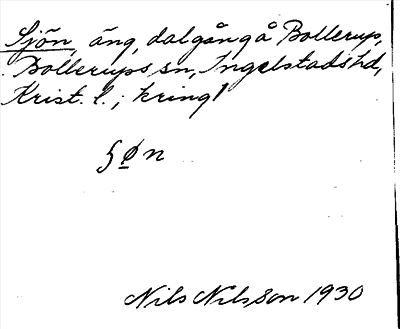 Sjön, äng, dalgång å Bollerup,
Bollerups sn, Ingelstads hd,
Krist. l.; kring l
§øn
Nils Nilsson 1930